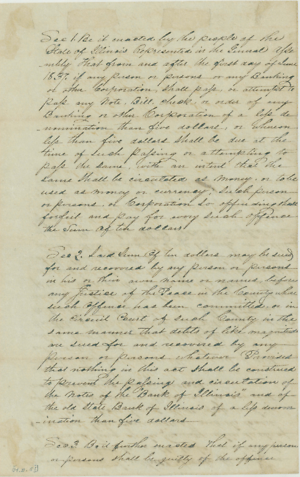 Sec 1. Be it enacted by the people of the
State of Illinois Represented in the General Assembly
That from and after the first day of June
1837 if any person or persons or any Banking
or other Corporation, shall pass or attempt to
pass any Note, Bill, check, or order of any
Banking or other Corporation of a less denomination
than five dollars, or whereon
less than five dollars shall be due at the
time of such passing or attempting to
pass the same, with an intent that the
same shall be circulated as Money, or to be
used as money or currency, such person
or persons, or Corporation so offending shall
forfeit and pay for every such offence
the Sum of ten dollars
Sec 2. Said Sum of ten dollars may be sued
for and recovered by any person or persons
in his or their own name or names, before
any Justice of the Peace in the County where
such offence has been committed or in
the Circuit Court of such County in the
same manner that debts of like magnitude
are sued for and recovered by any
person or persons whatever Provided
that nothing in this act shall be construed
to prevent the passing and circulation of
the Notes of the "Bank of Illinois" and of
the old State Bank of Illinois of a less denomination
than five dollars.
Sec 3. Be it further enacted that if any person
or persons shall be guilty of the offence